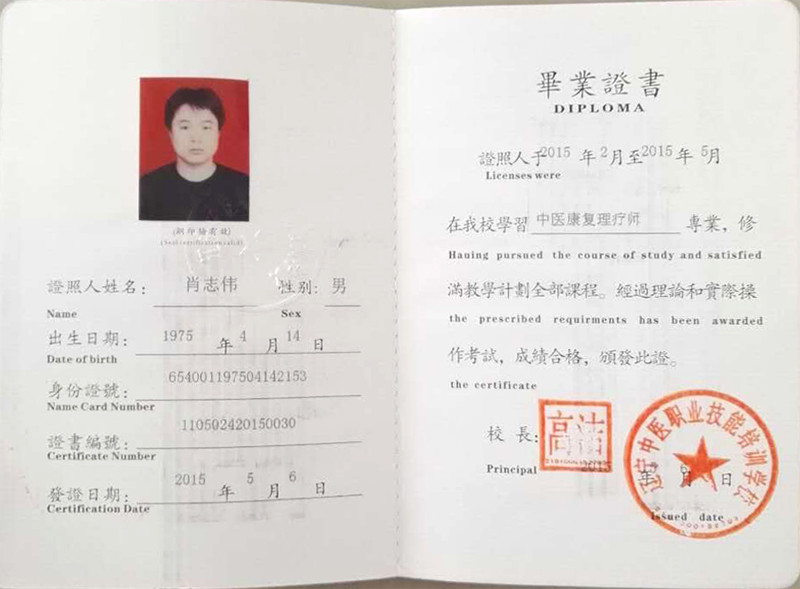 (鋼印驗看效)
(Seal certification valid)
證照人姓名: 肖志伟 性别: 男
Name Sex
出生日期: 1975 年 4 月 14 日
Date of birth
身份證號: 654001197504142153
Name Card Number
證書編號: 110502420150030
Certificate Number
發證日期: 2015 年 5 月 6 日
Certification Date
畢業證書
DIPLOMA
證照人于2015 年 2 月至 2015 年 5 月
Licenses were
在我校學習 中医康复理疗师 專業，修
Hauing pursued the course of study and satisfied
滿教學計劃全部課程。經過理論和實際操
the prescribed requirments has been awarded
作考試，成績合格，頒發此證。
the certificate
校長: 高洁
Principal 2015 年 月 日
Issued date
辽宁中医职业技能培训学校